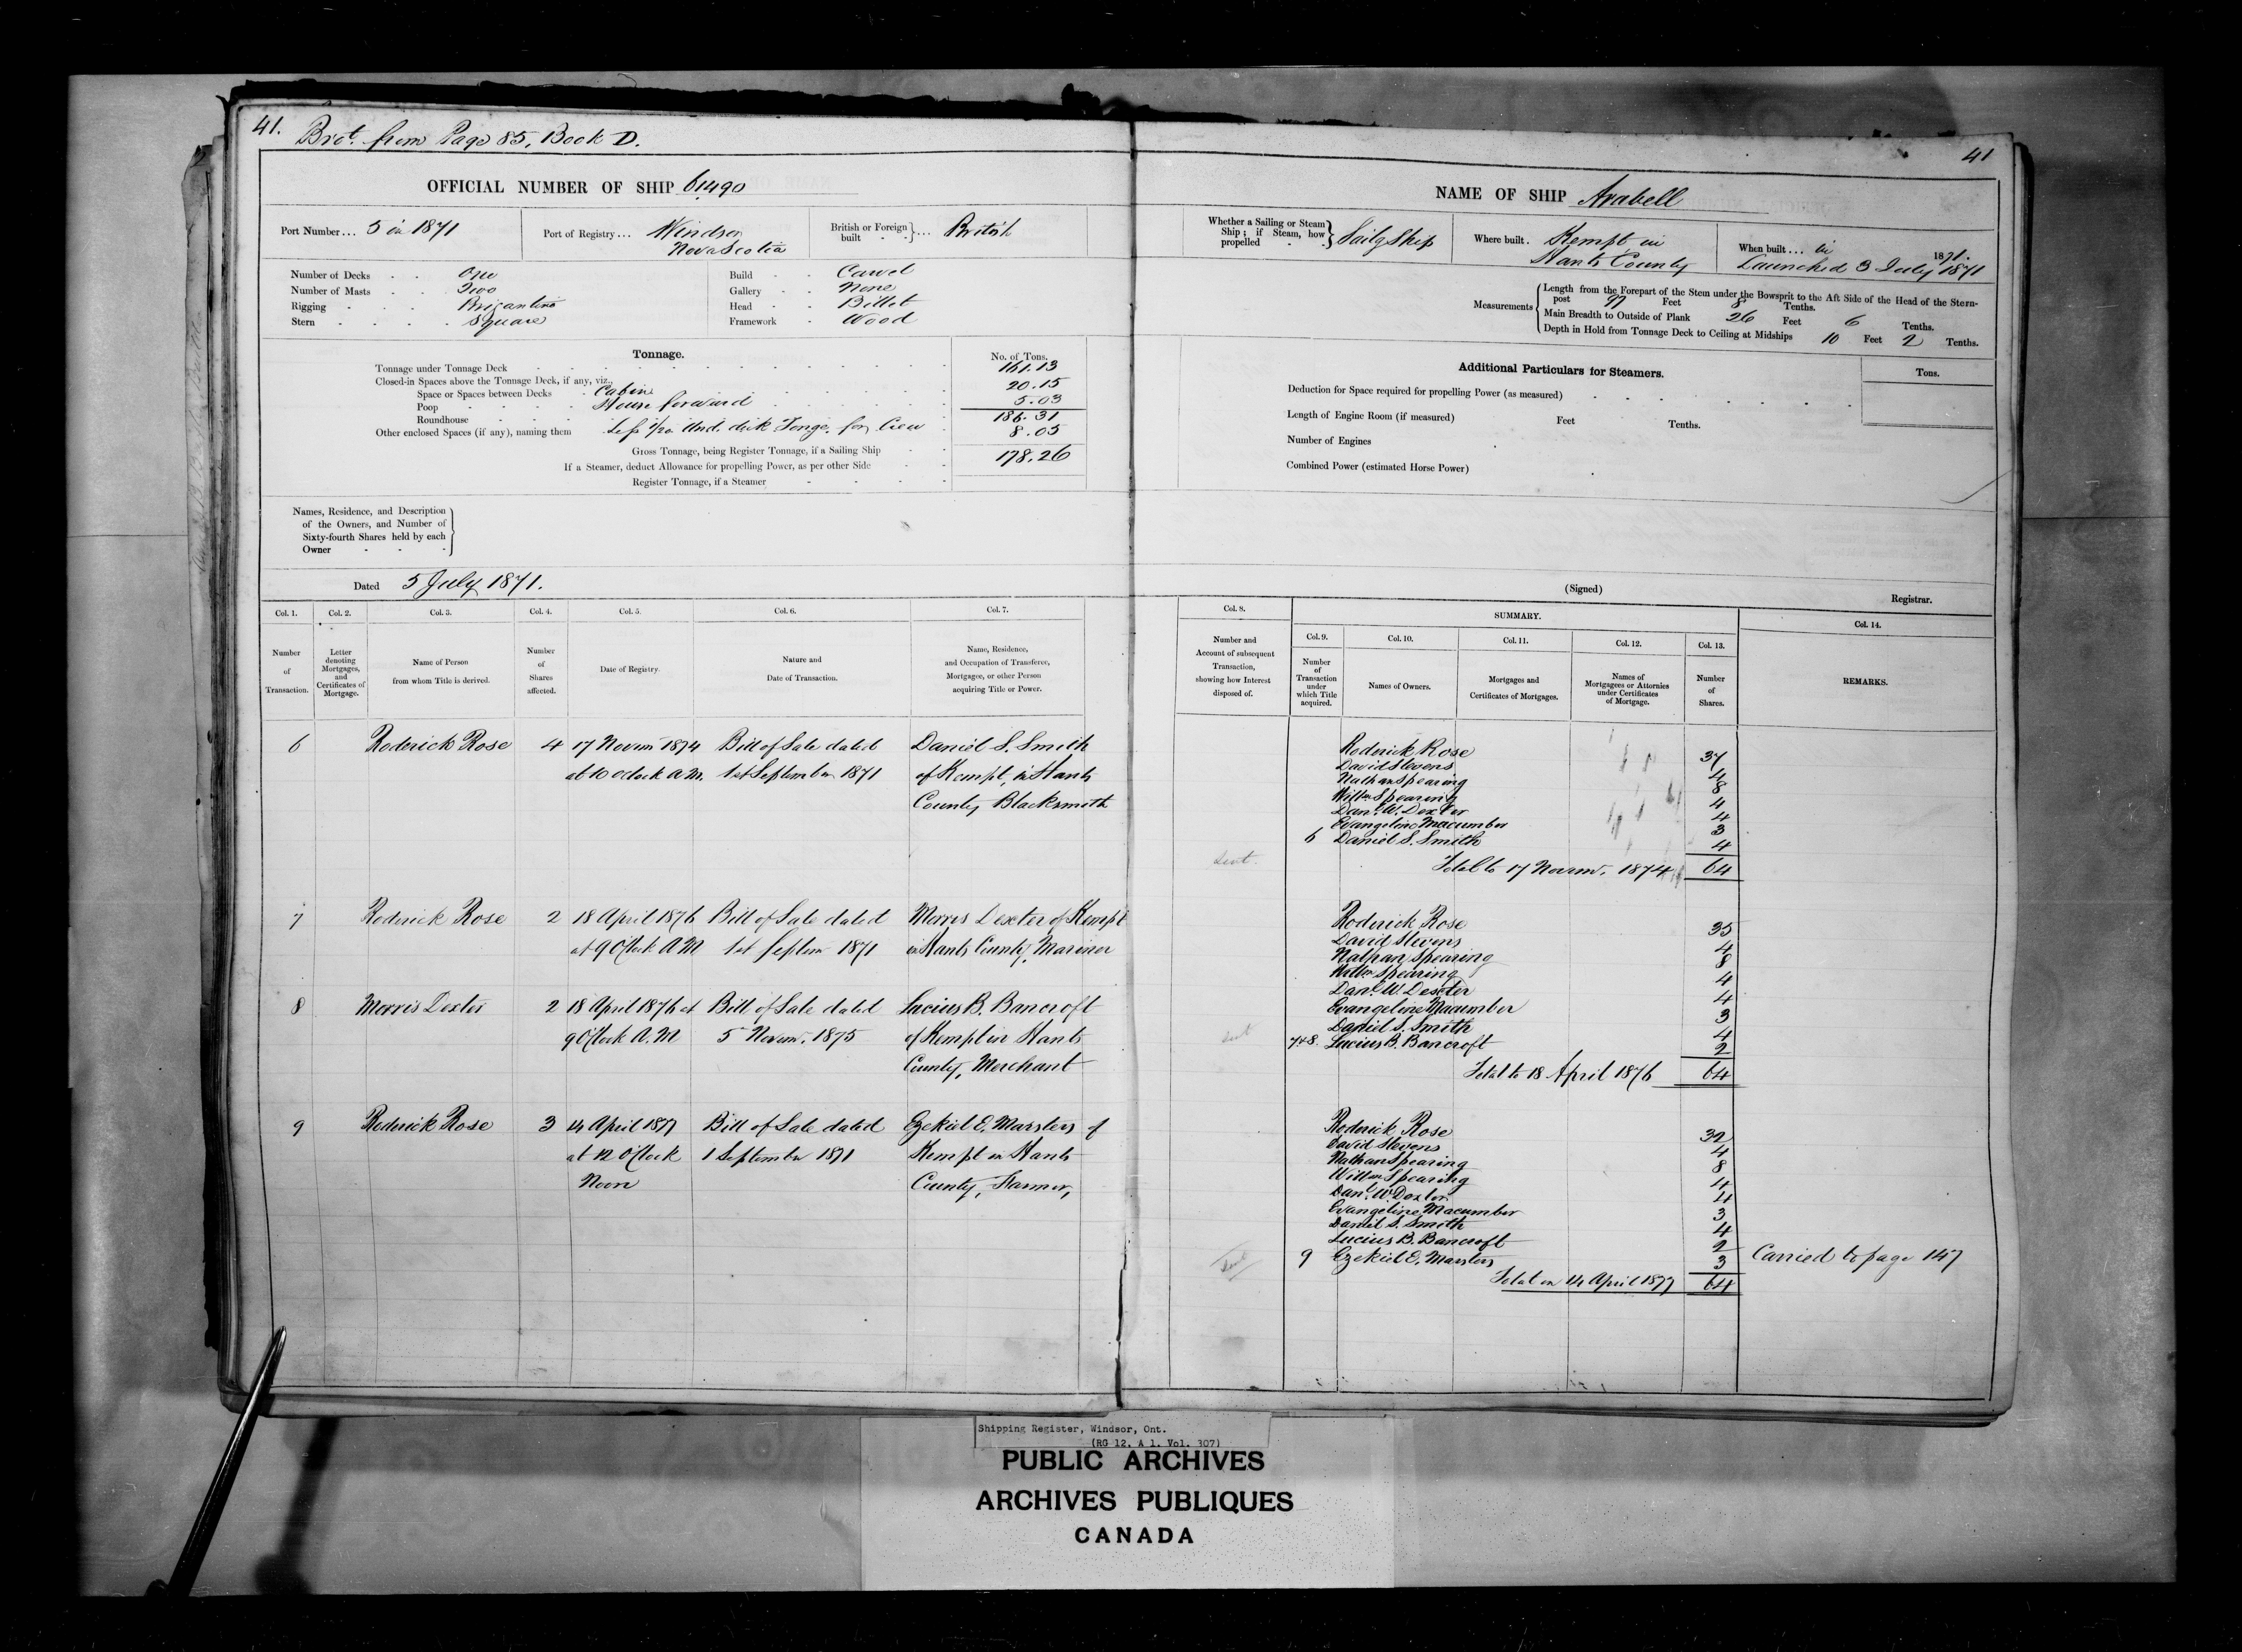 41.
Brot. from Page 85, Book D.
41
OFFICIAL NUMBER OF SHIP 61490
NAME OF SHIP Arabell
Port Number... 5 in 1871
Port of Registry... Windsor
Nova Scotia
British or Foreign built ... British
Whether a Sailing or Steam Ship; if Steam, how propelled Sailg Ship
Where built. Kempt in
Hants County
When built... in 1871.
Launched 3 July 1871
Number of Decks One
Number of Masts Two
Rigging Brigantine
Stern Square
Build Carvel
Gallery None
Head Billet
Framework Wood
Measurements
Length from the Forepart of the Stem under the Bowsprit to the Aft Side of the Head of the Stern-
post 97 Feet 8 Tenths.
Main Breadth to Outside of Plank 26 Feet 6 Tenths.
Depth in Hold from Tonnage Deck to Ceiling at Midships 10 Feet 2 Tenths.
Tonnage.
No. of Tons.
Tonnage under Tonnage Deck 161.13
Closed-in Spaces above the Tonnage Deck, if any, viz.,
Space or Spaces between Decks Cabin 20.15
Poop House forward 5.03
Roundhouse 186.31
Other enclosed Spaces (if any), naming them Less 1/20 Und. deck Tonge. for Crew 8.05
Gross Tonnage, being Register Tonnage, if a Sailing Ship 178.26
If a Steamer, deduct Allowance for propelling Power, as per other Side
Register Tonnage, if a Steamer
Additional Particulars for Steamers.
Tons.
Deduction for Space required for propelling Power (as measured)
Length of Engine Room (if measured) Feet Tenths.
Number of Engines
Combined Power (estimated Horse Power)
Names, Residence, and Description
of the Owners, and Number of
Sixty-fourth Shares held by each
Owner
Dated 5 July 1871.
(Signed)
Registrar.
Col. 1.
Col. 2.
Col. 3.
Col. 4.
Col. 5.
Col. 6.
Col. 7.
Col. 8.
SUMMARY.
Col. 9.
Col. 10.
Col. 11.
Col. 12.
Col. 13.
Col. 14.
Number of Transaction.
Letter denoting Mortgages, and Certificates of Mortgage.
Name of Person from whom Title is derived.
Number of Shares affected.
Date of Registry.
Nature and Date of Transaction.
Name, Residence, and Occupation of Transferee, Mortgagee, or other Person acquiring Title or Power.
Number and Account of subsequent Transaction, showing how Interest disposed of.
Number of Transaction under which Title acquired.
Names of Owners.
Mortgages and Certificates of Mortgages.
Names of Mortgagees or Attornies under Certificates of Mortgage.
Number of Shares.
REMARKS.
6 Roderick Rose 4 17 Novem 1874 Bill of Sale dated Daniel S. Smith
at 10 oclock a.m. 1st September 1871 of Kempt, in Hants
County Blacksmith
Roderick Rose 37
David Stevens 4
Nathan Spearing 8
Willm Spearing 4
Danl. W. Dexter 4
Evangeline Macumber 3
6 Daniel S. Smith 4
Sent. Total to 17 Novem. 1874 64
7 Roderick Rose 2 18 April 1876 Bill of Sale dated Morris Dexter of Kempt
at 9 O'Clock A.M 1st Septem 1871 in Hants County, Mariner
8 Morris Dexter 2 18 April 1876 at Bill of Sale dated Lucius B. Bancroft
9 O'Clock A.M 5 Novem. 1875 of Kempt in Hants
County, Merchant
Roderick Rose 35
David Stevens 4
Nathan Spearing 8
Willm Spearing 4
Danl. W. Dexter 4
Evangeline Macumber 3
Daniel S. Smith 4
Sent 7+8. Lucius B. Bancroft 2
Total to 18 April 1876 64
9 Roderick Rose 3 14 April 1877 Bill of Sale dated Ezekiel E. Marsters of
at 12 O'Clock 1 September 1871 Kempt in Hants
Noon County, Farmer,
Roderick Rose 32
David Stevens 4
Nathan Spearing 8
Willm Spearing 4
Danl. W. Dexter 4
Evangeline Macumber 3
Daniel S. Smith 4
Lucius B. Bancroft 2
Sent 9 Ezekiel E. Marsters 3 Carried to page 147
Total on 14 April 1877 64
Shipping Register, Windsor, Ont.
(RG 12, A 1, Vol. 307)
PUBLIC ARCHIVES
ARCHIVES PUBLIQUES
CANADA